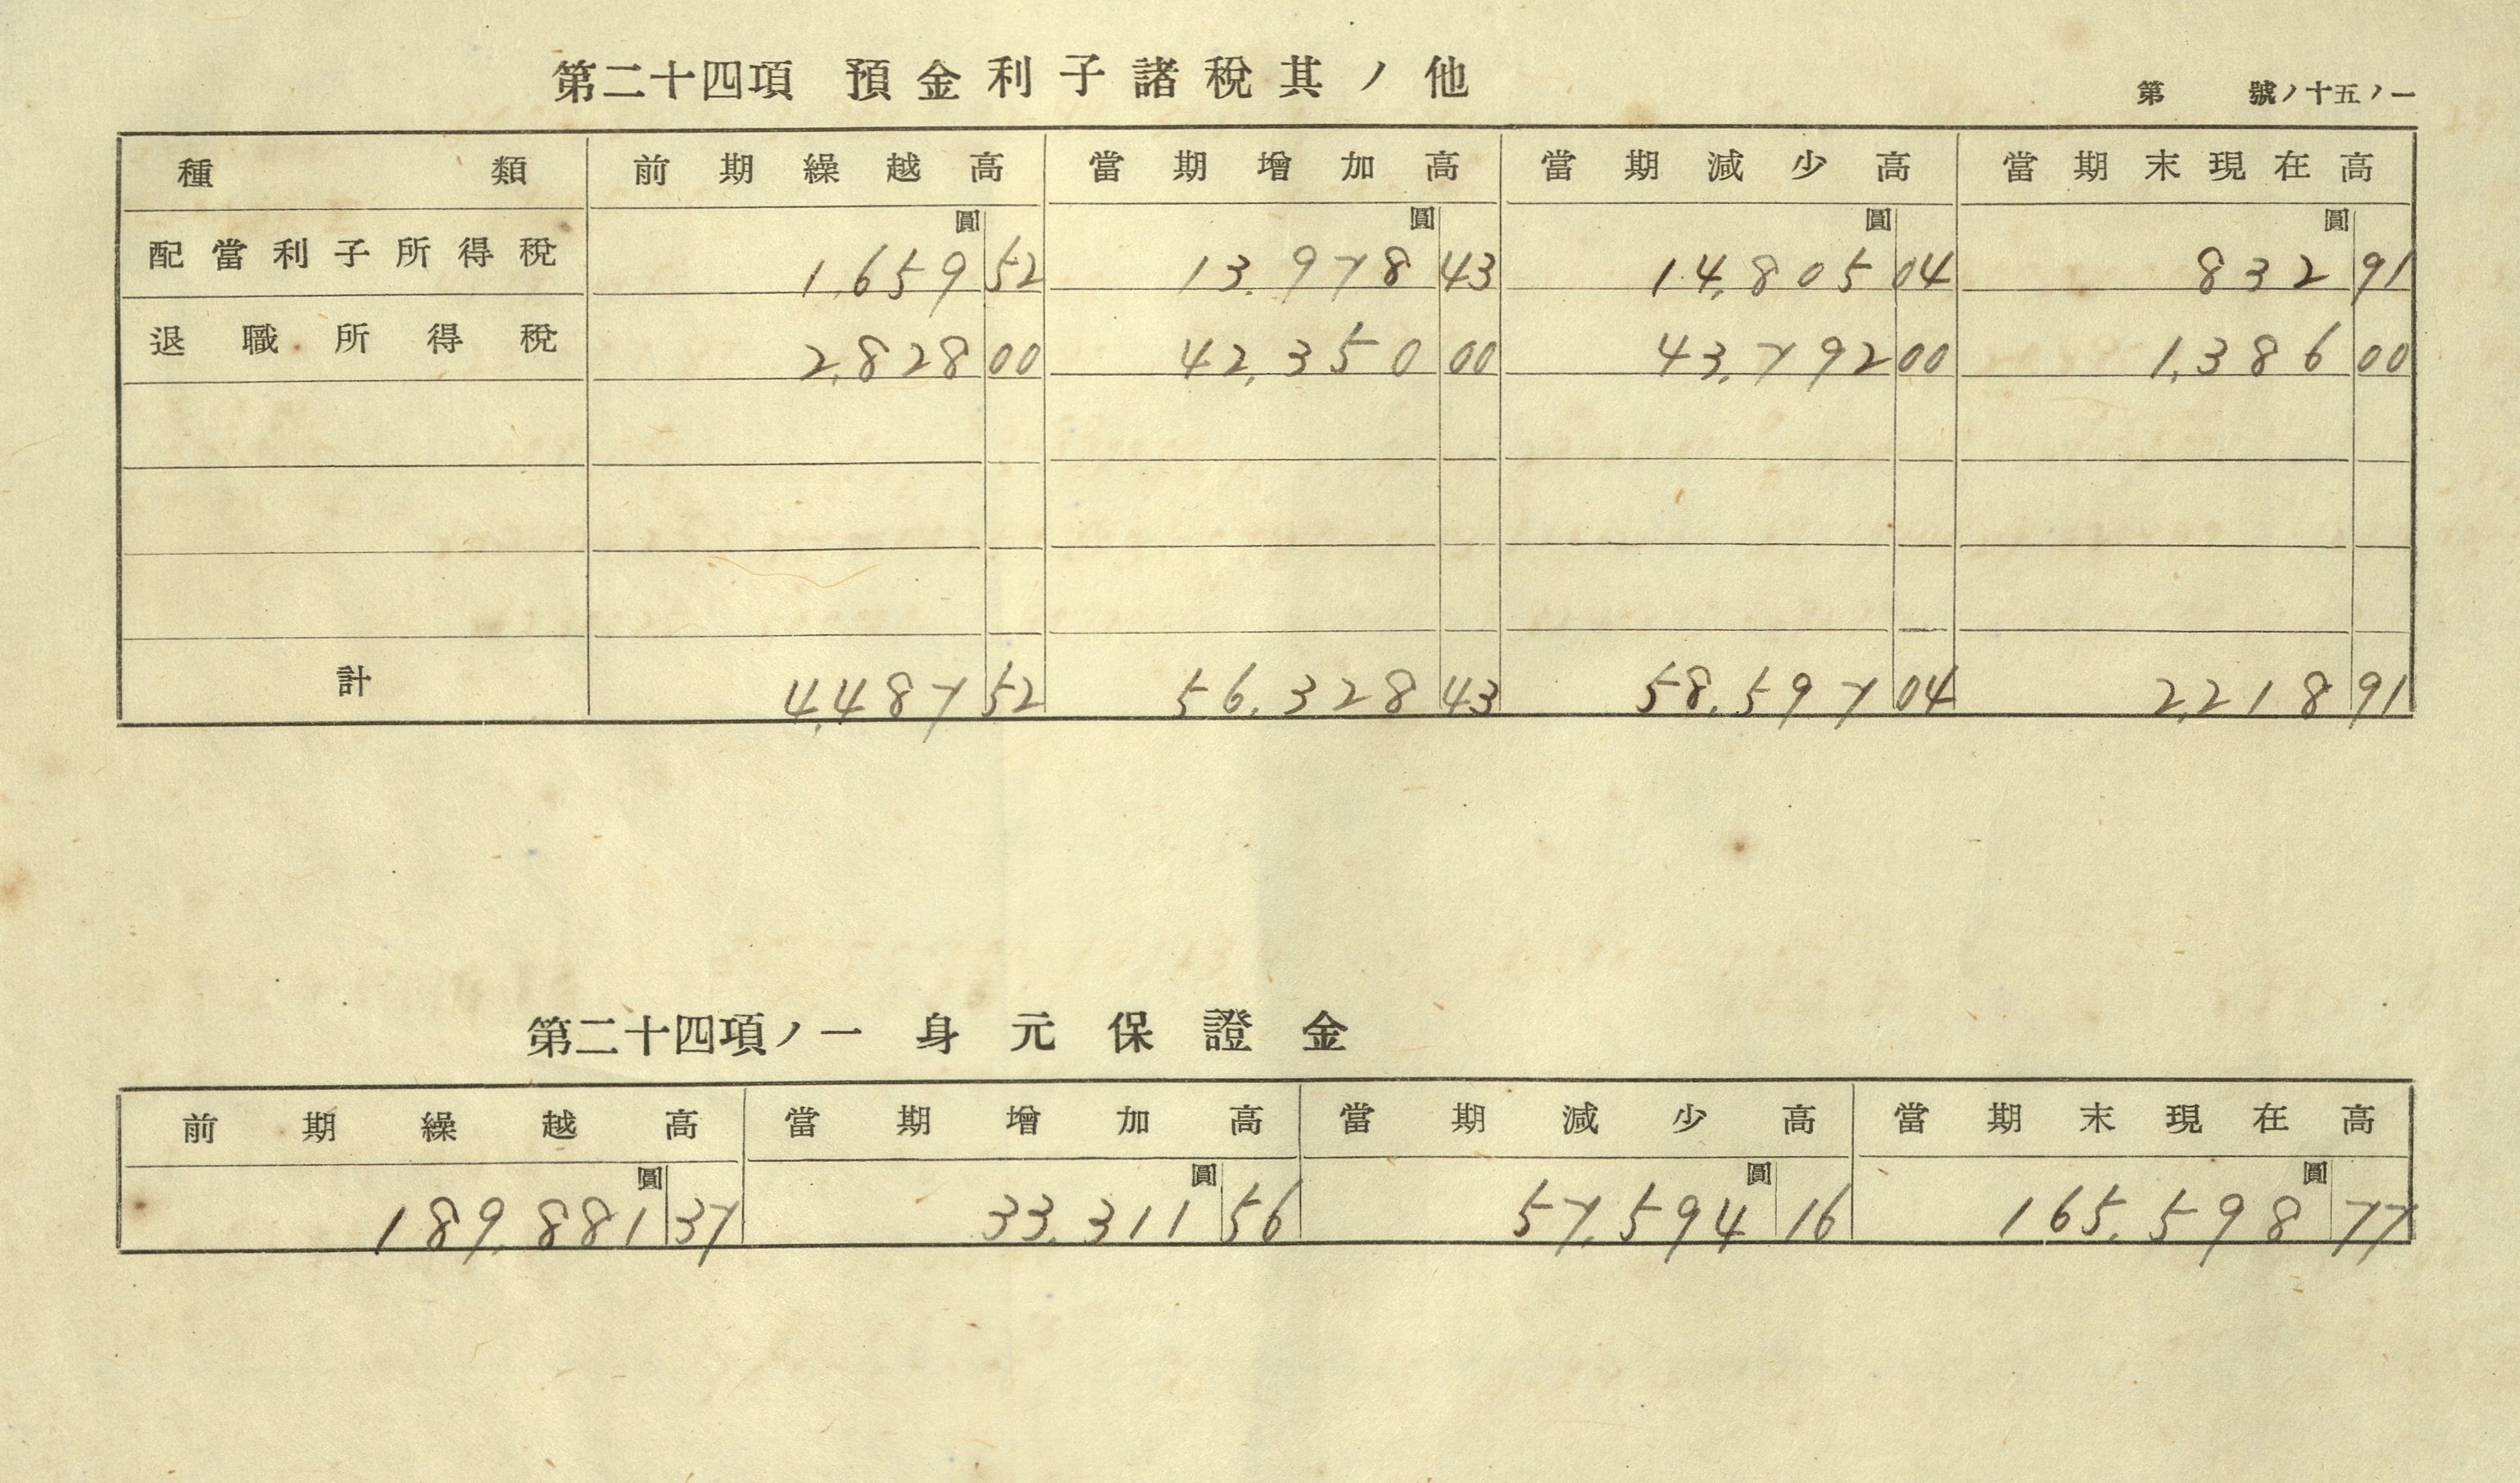 第二十四項 預金利子諸稅其ノ他
第 號ノ十五ノ一
種類 前期繰越高 當期增加高 當期減少高 當期末現在高
圓 圓 圓 圓
配當利子所得稅 1,659 52 13,978 43 14,805 04 832 91
退職所得稅 2,828 00 42,350 00 43,792 00 1,386 00
計 4,487 52 56,328 43 58,597 04 2,218 91
第二十四項ノ一 身元保證金
前期繰越高 當期增加高 當期減少高 當期末現在高
圓 圓 圓 圓
189,881 37 33,311 56 57,594 16 165,598 77